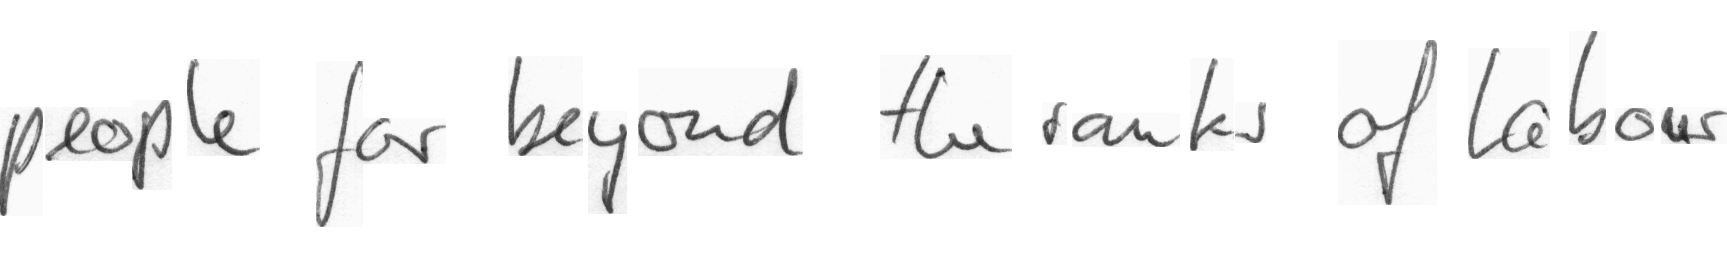 people far beyond the ranks of labour